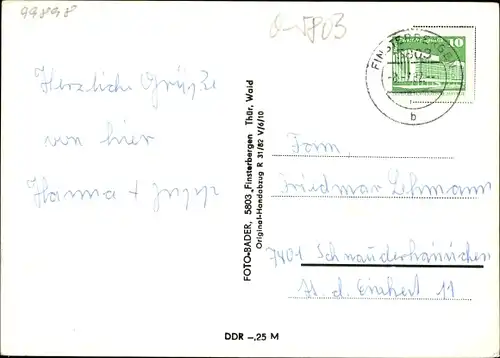 99898
5803
Herzliche Grüße
von hier
Hanna +
FOTO-BADER, 5803 Finsterbergen Thür. Wald
Original-Handabzug R 31/82 V/6/10
10
FINSTERBERGEN
5803
b
Fam.
Friedmar Lehmann
7401 Schnauderhainichen
Str. d. Einheit 11
DDR -,25 M